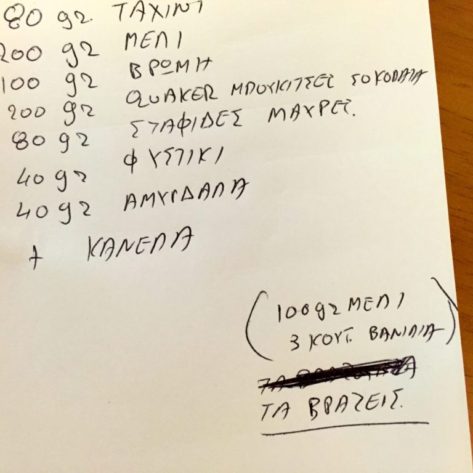 80 gr ΤΑΧΙΝΙ
200 gr ΜΕΛΙ
100 gr ΒΡΩΜΗ
200 gr QUAKER ΜΠΟΥΚΙΤΣΕΣ ΣΟΚΟΛΑΤΑ
80 gr ΣΤΑΦΙΔΕΣ ΜΑΥΡΕΣ.
40 gr ΦΥΣΤΙΚΙ
40 gr ΑΜΥΓΔΑΛΑ
1 ΚΑΝΕΛΑ
(100gr ΜΕΛΙ
3 ΚΟΥΤ. ΒΑΝΙΛΙΑ)
ΤΑ ΒΡΑΖΕΙΣ.